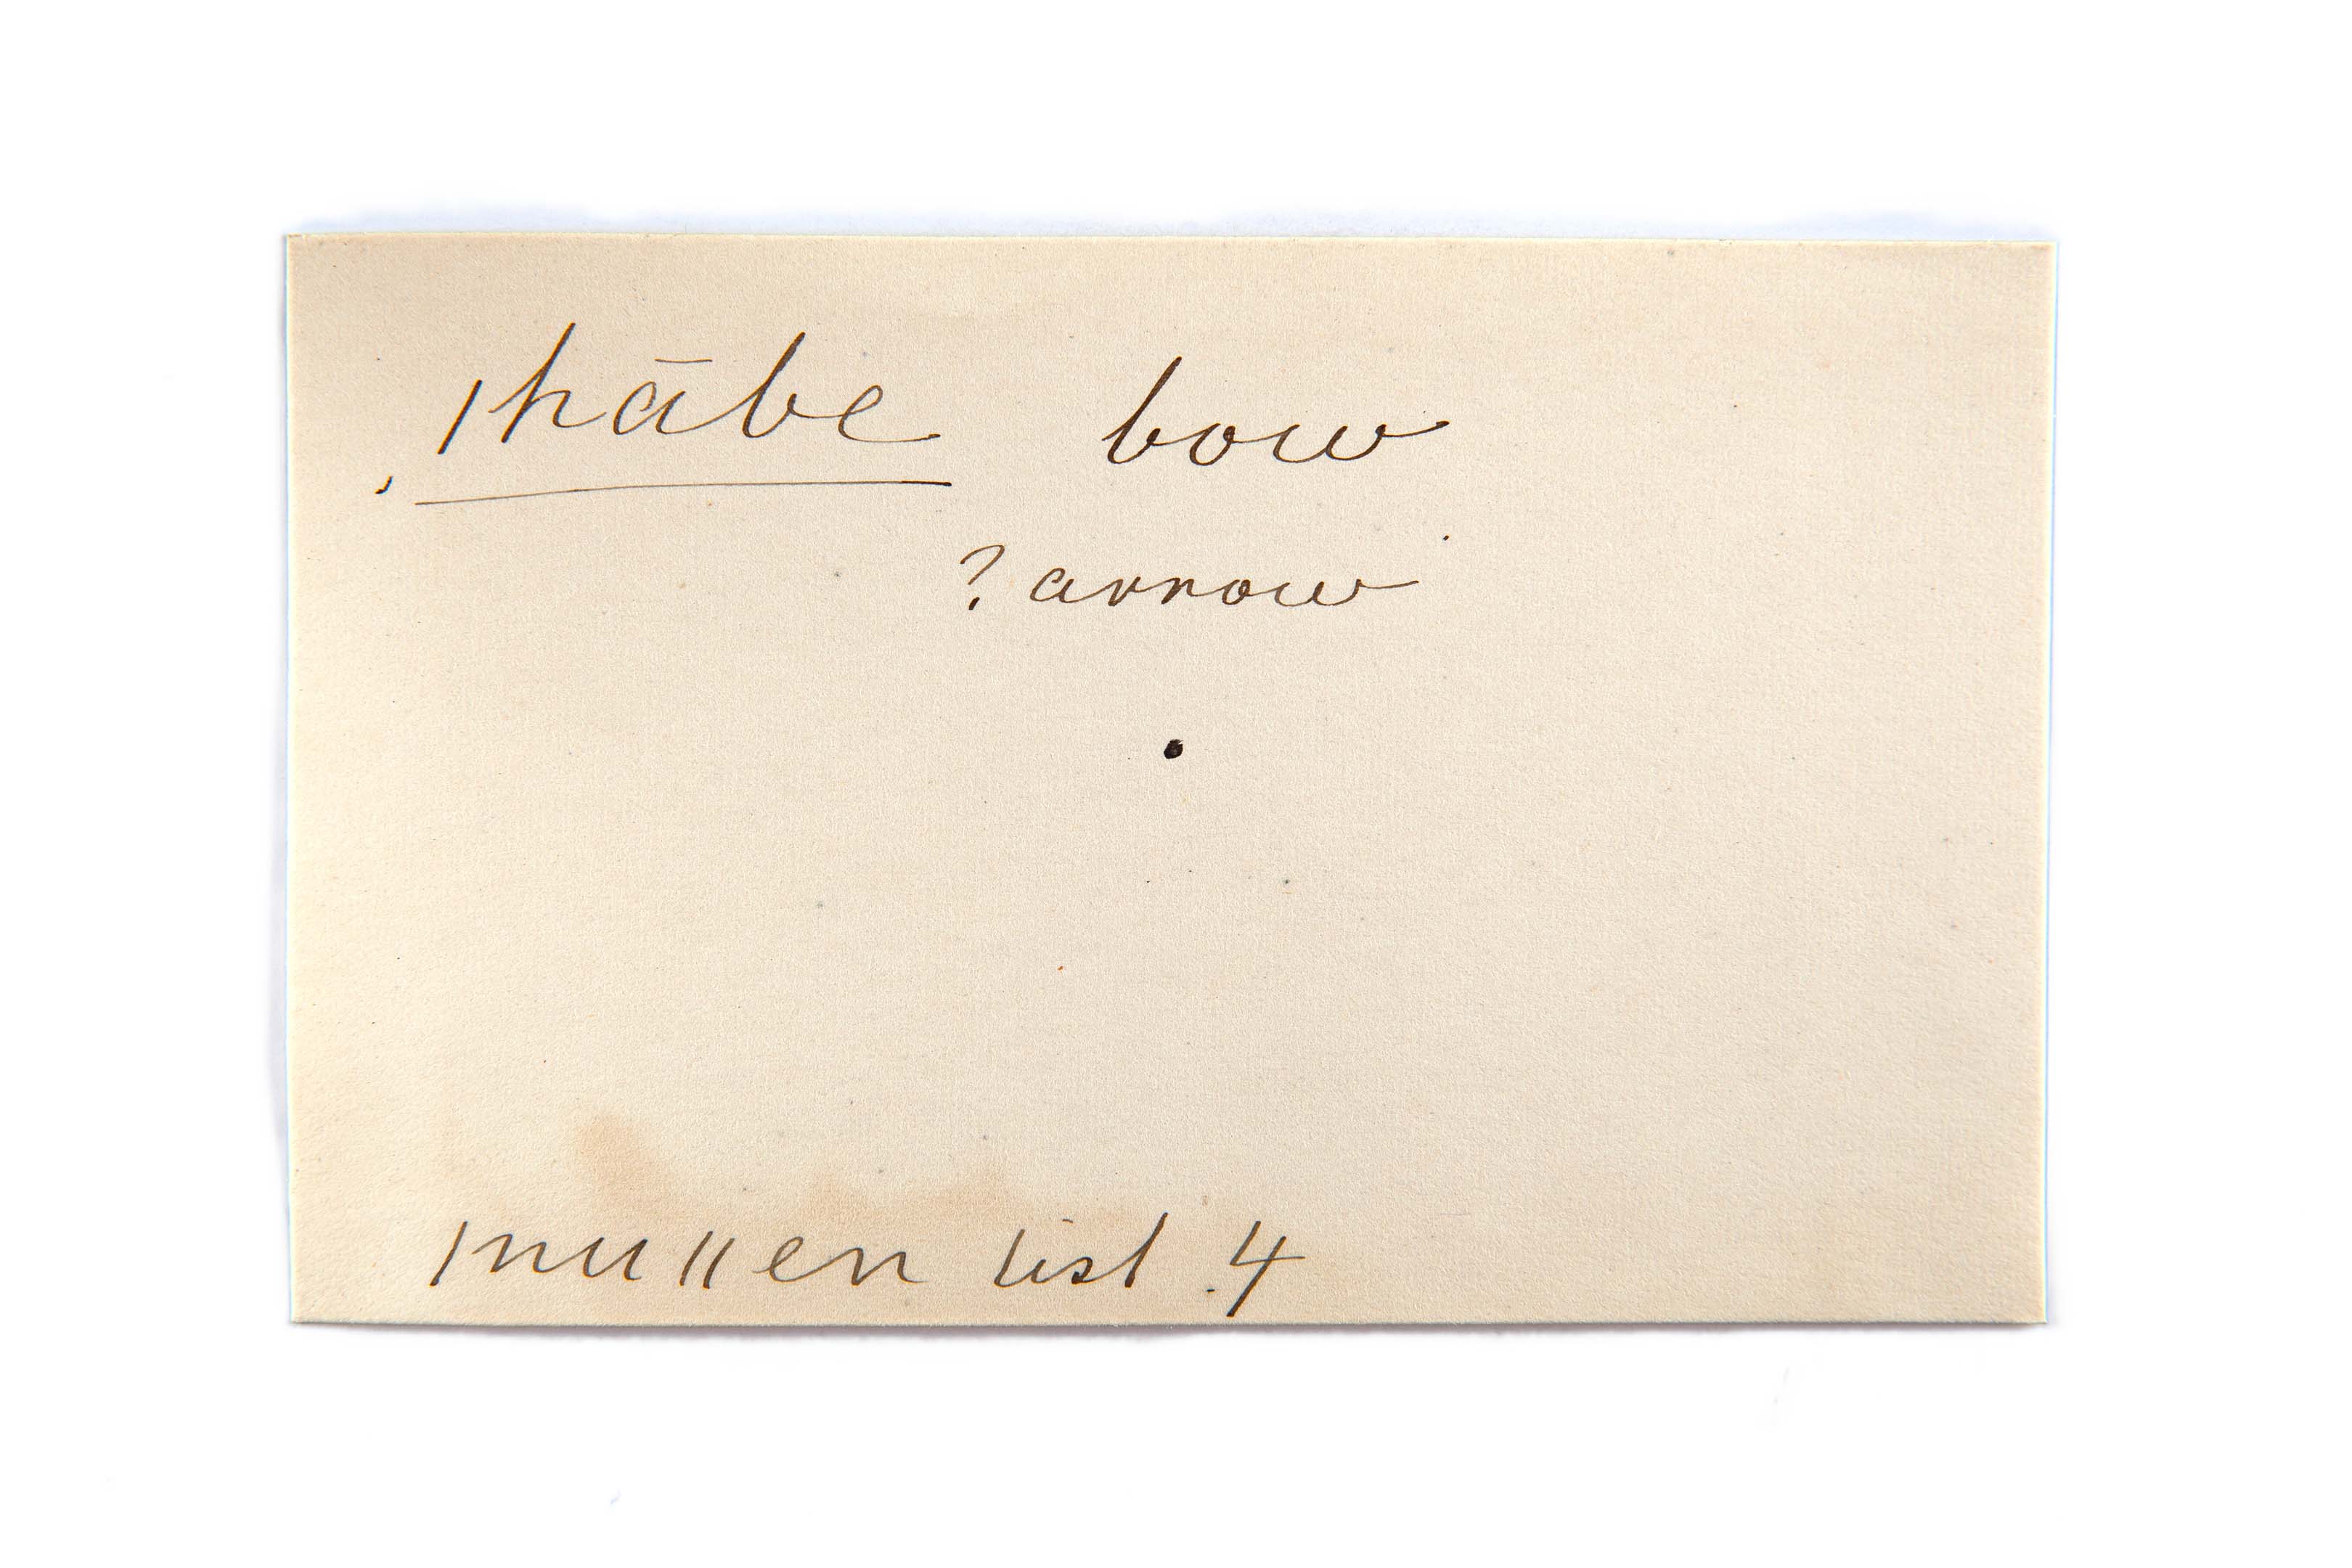 |hābe bow
? arrow
|nu||en list 4